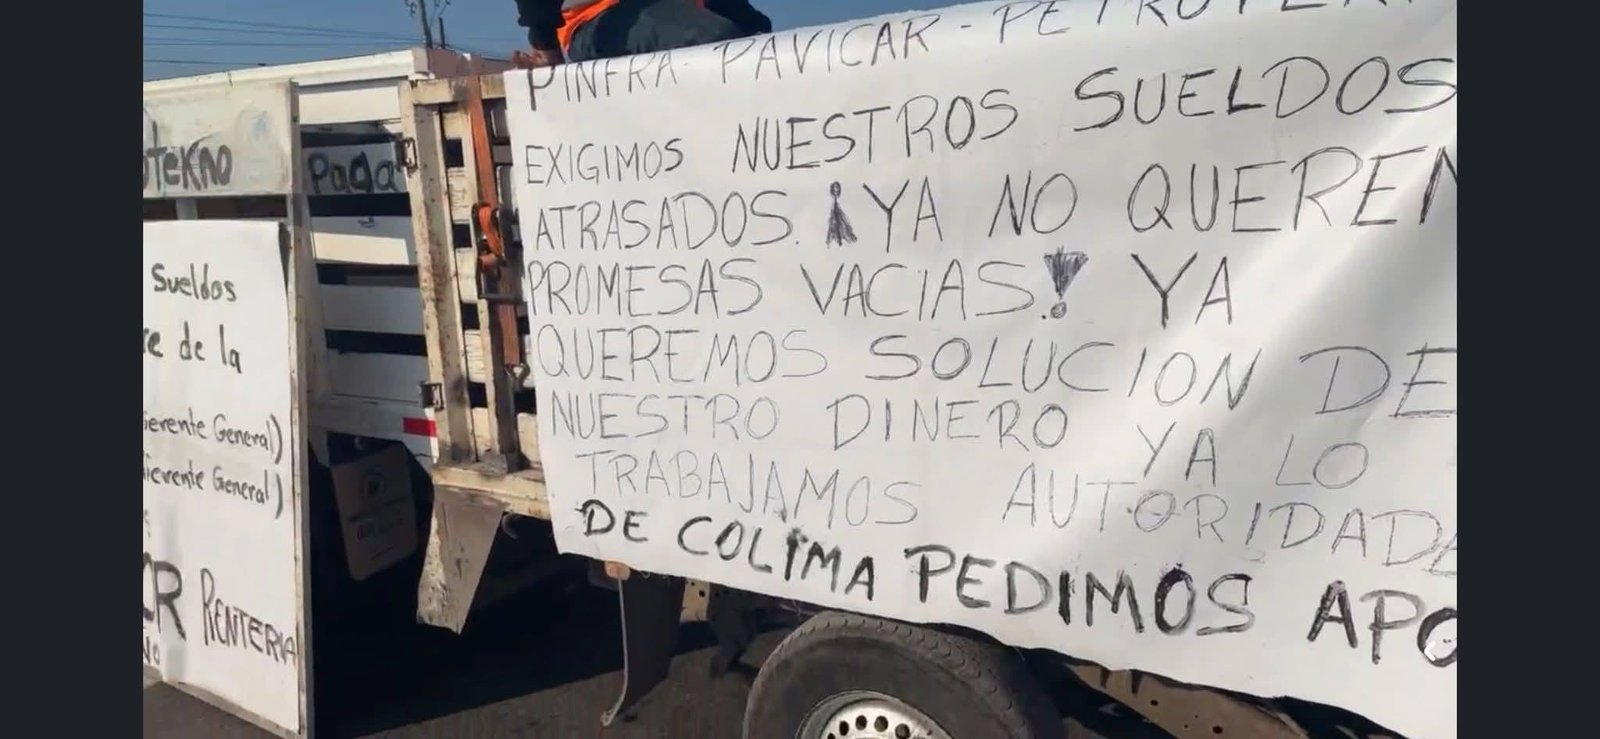 Paga
Sueldos
de la
Gerente General)
General)
RENTERIA
NO
PINFRA - PAVICAR -
EXIGIMOS NUESTROS SUELDOS
ATRASADOS. ¡YA NO QUEREM
PROMESAS VACIAS! YA
QUEREMOS SOLUCION DE
NUESTRO DINERO YA LO
TRABAJAMOS AUTORIDADE
DE COLIMA PEDIMOS APO